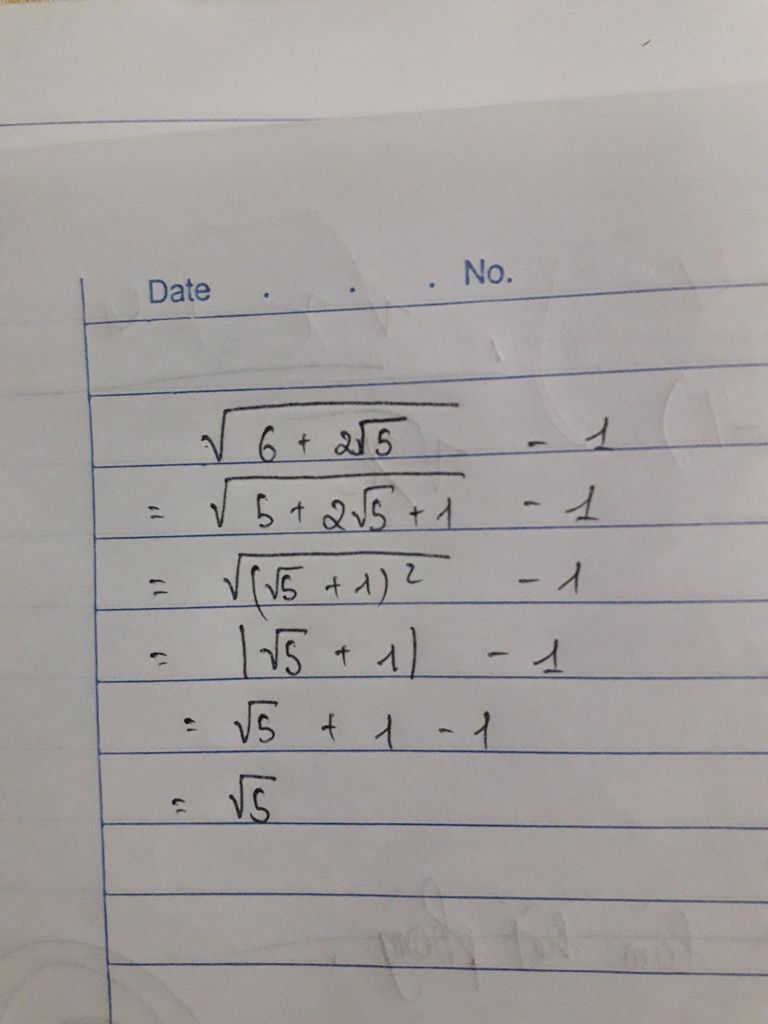 Date . . . No.
√(6 + 2√5) - 1
= √(5 + 2√5 + 1) - 1
= √((√5 + 1)²) - 1
= |√5 + 1| - 1
= √5 + 1 - 1
= √5